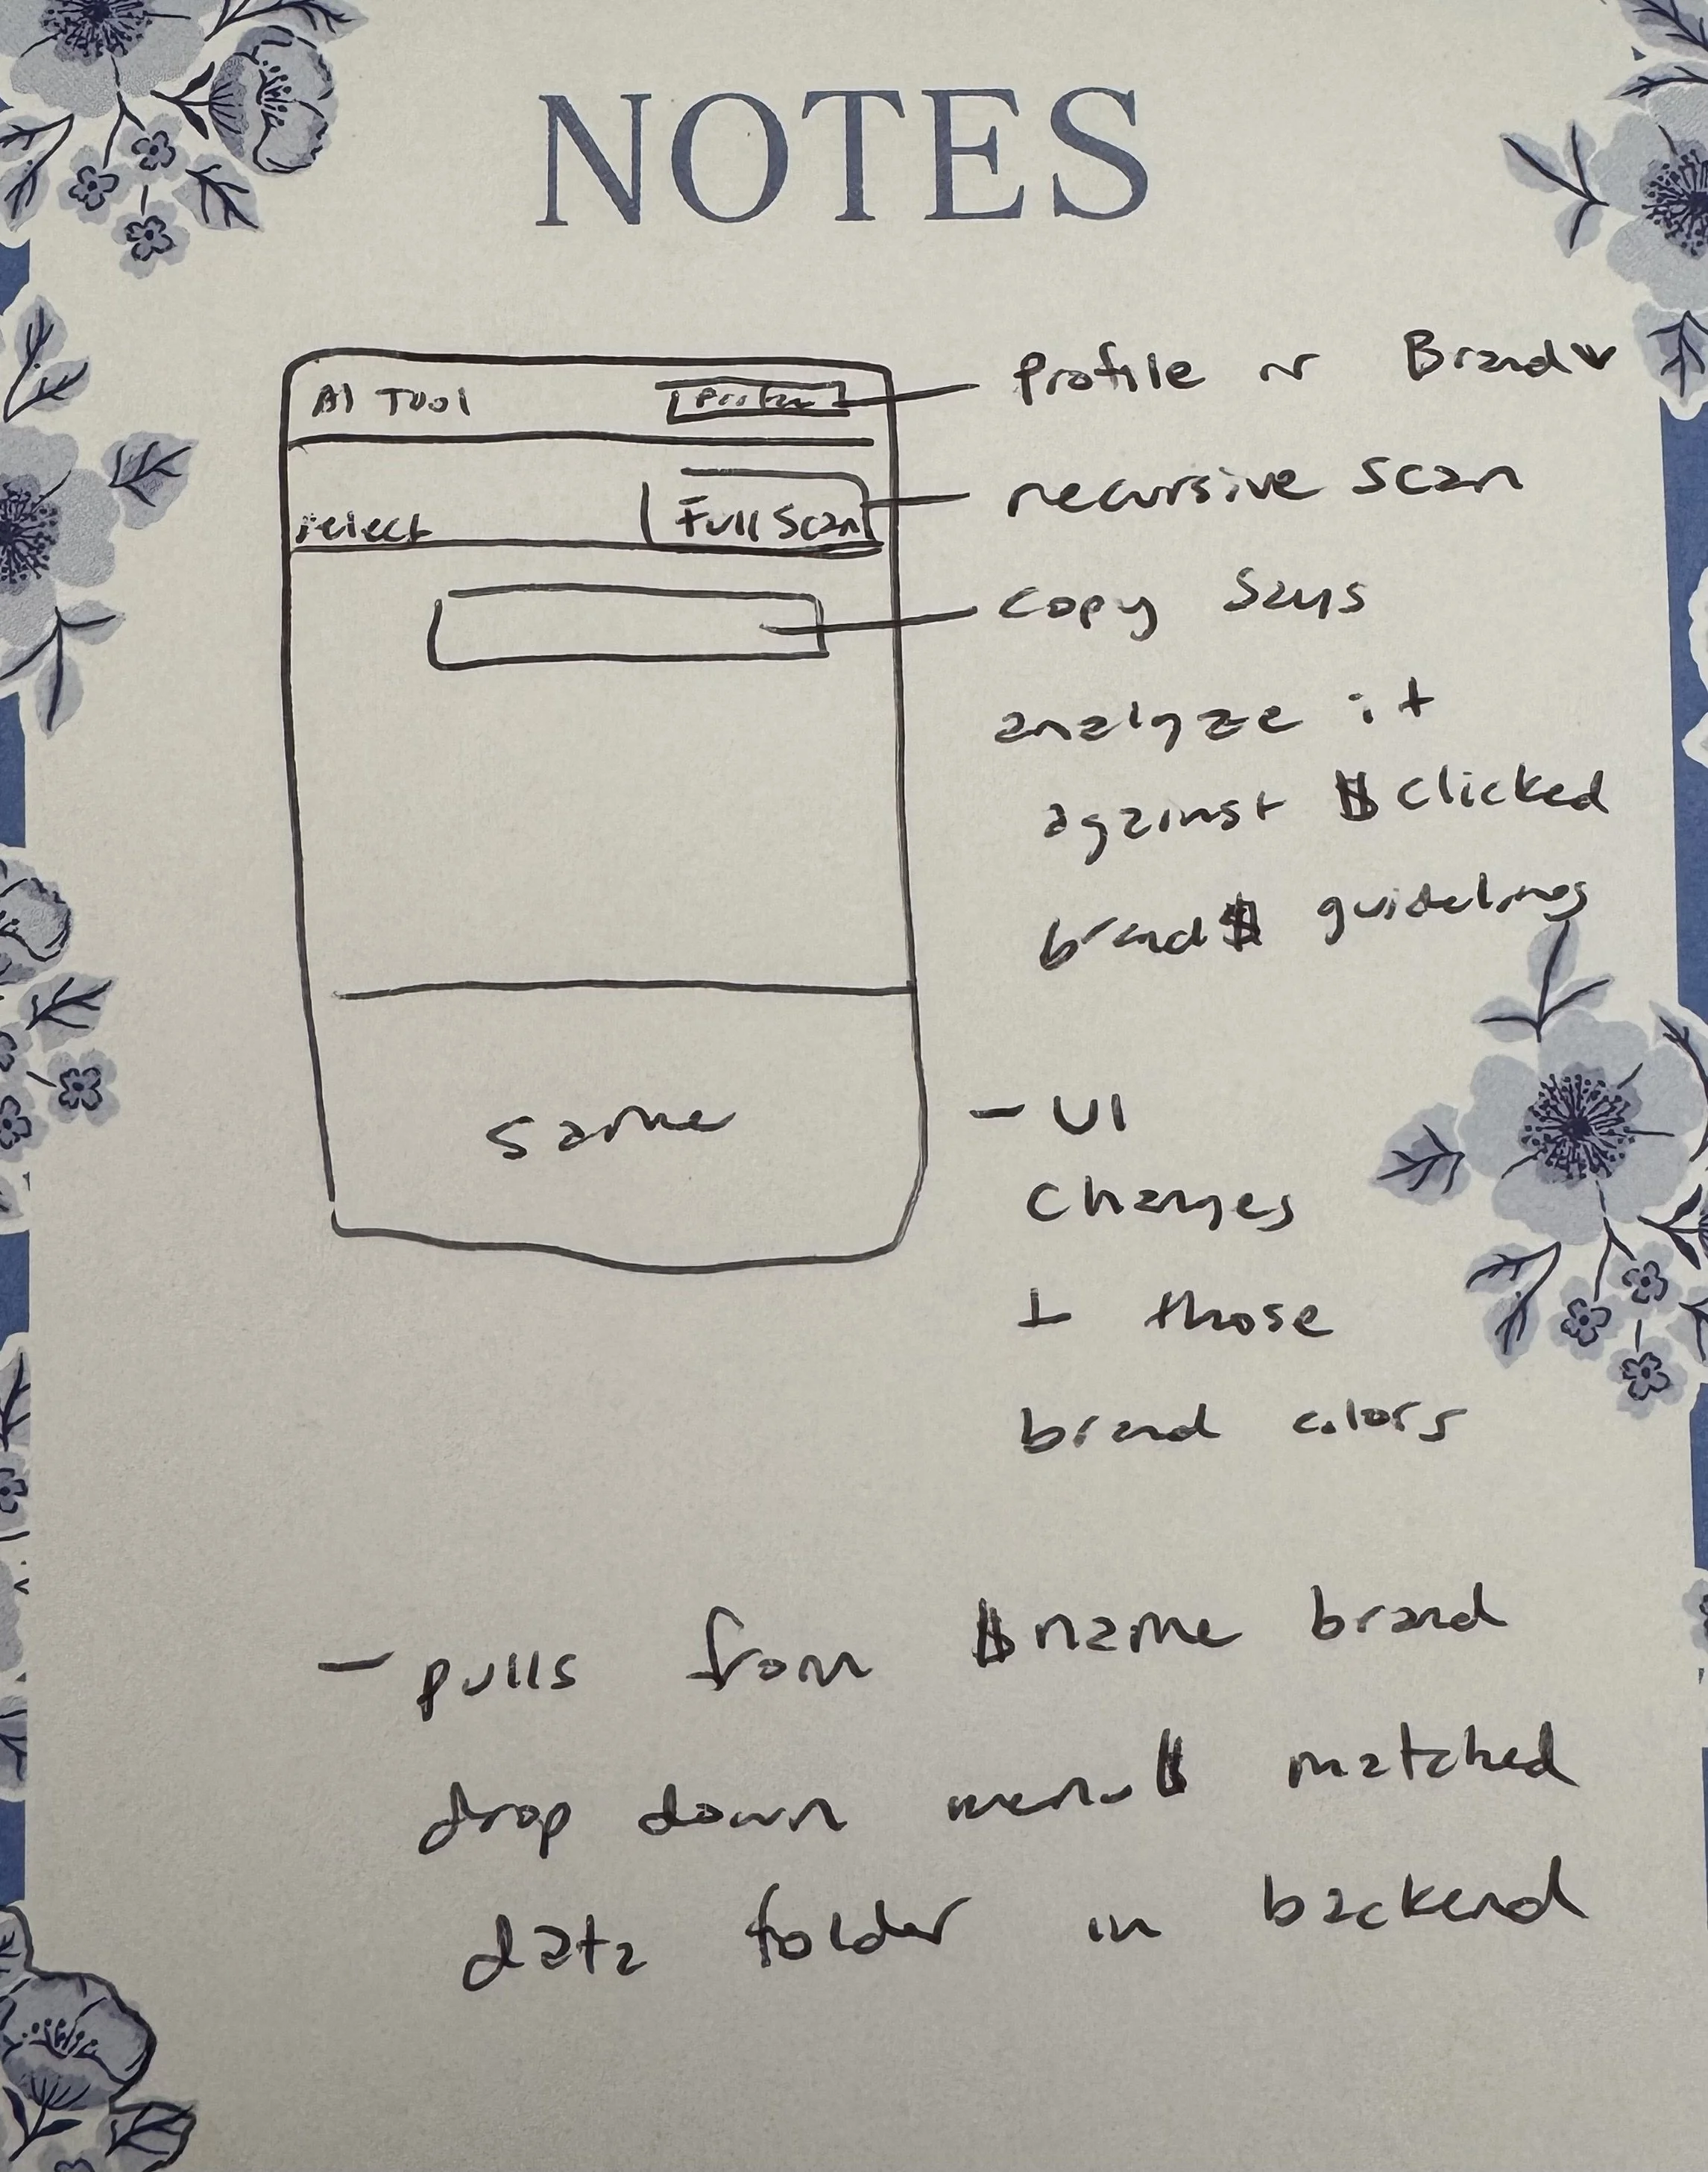 NOTES
AI Tool
Profile or Brand
select
Full Scan
recursive scan
copy says
analyze it
against $clicked
brand$ guidelines
same
- UI
changes
those
brand colors
- pulls from $name brand
drop down menu$ matched
data folder in backend